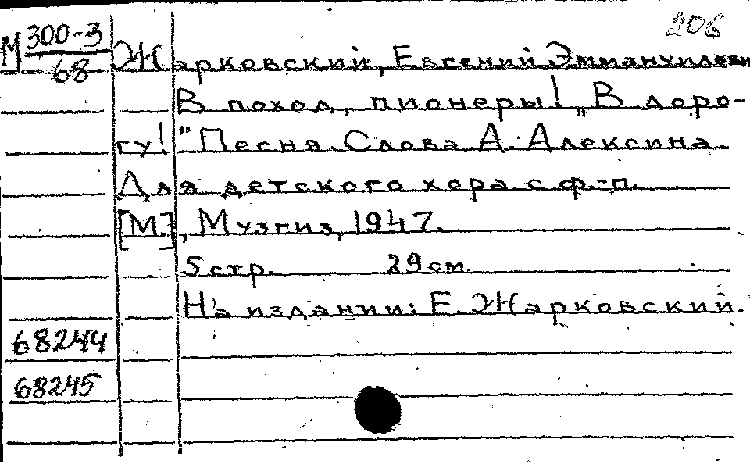 206
М 300-3
68
Жарковский, Евгений Эммануилович
В поход, пионеры! „В доро-
гу!" Песня. Слова А. Алексина.
Для детского хора с ф-п.
[М.], Музгиз, 1947.
5 стр. 29 см.
На издании: Е. Жарковский.
68244
68245